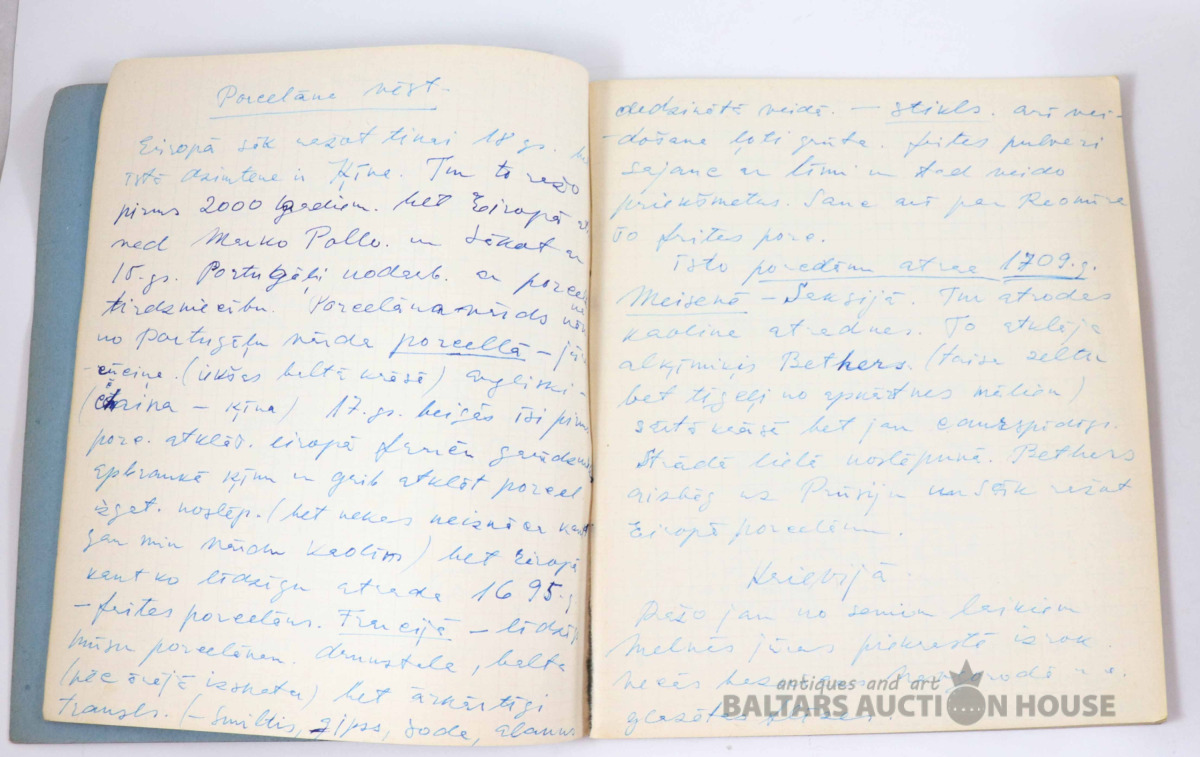 Porcelāna vēst.
Eiropā sāk ražot tikai 18 gs. 
īstā dzimtene ir Ķīna. Tur to ražo
pirms 2000 gadiem. bet Eiropā
ned Marko Pollo. un sākot ar
15. gs. Portugāļi nodarb. ar porcelāna
tirdzniecību. Porcelāna vārds
no Portugāļu vārda porcellā – 
(iekšas baltā krāsā) angliski –
(čhaina – ķīna) 17. gs. beigās īsi pirms
porc. atklāš. eiropā 
apbraukā ķīnu un grib atklāt porcel
izgat. noslēp. (bet nekas neiznāk
gan min vārdu Kaolīns) bet Eiropā
kaut ko līdzīgu atrada 1695. g
– frites porcelāns. Francijā – līdzīgs
mūsu porcelānam. , balta
(pēc ārējā izskata) bet ārkārtīgi
trausls. (– smiltis, gipss, soda, alauns
dedzinātā veidā. – stikls. arī vei-
-došana ļoti grūta. frites pulveri
sajauc ar līmi un tad veido
priekšmetus. Sauc arī par Reomīra
to frites porc.
Īsto porcelānu atrae 1709. g.
Meisenā – Saksijā. Tur atrodas
kaolīna atradnes. To atklāja
alķīmiķis Bethers. (taisa zeltu
bet tīģeļi no apkārtnes māliem)
sārtā krāsā bet jau caurspīdīgs.
Strādā lielā noslēpumā. Bethers
aizbēg uz Prūsiju un sāk ražot
Eiropā porcelānu.
Krievijā.
Ražo jau no seniem laikiem
Melnās jūras piekrastē izrok.
vecās
antiques and art
BALTARS AUCTION HOUSE